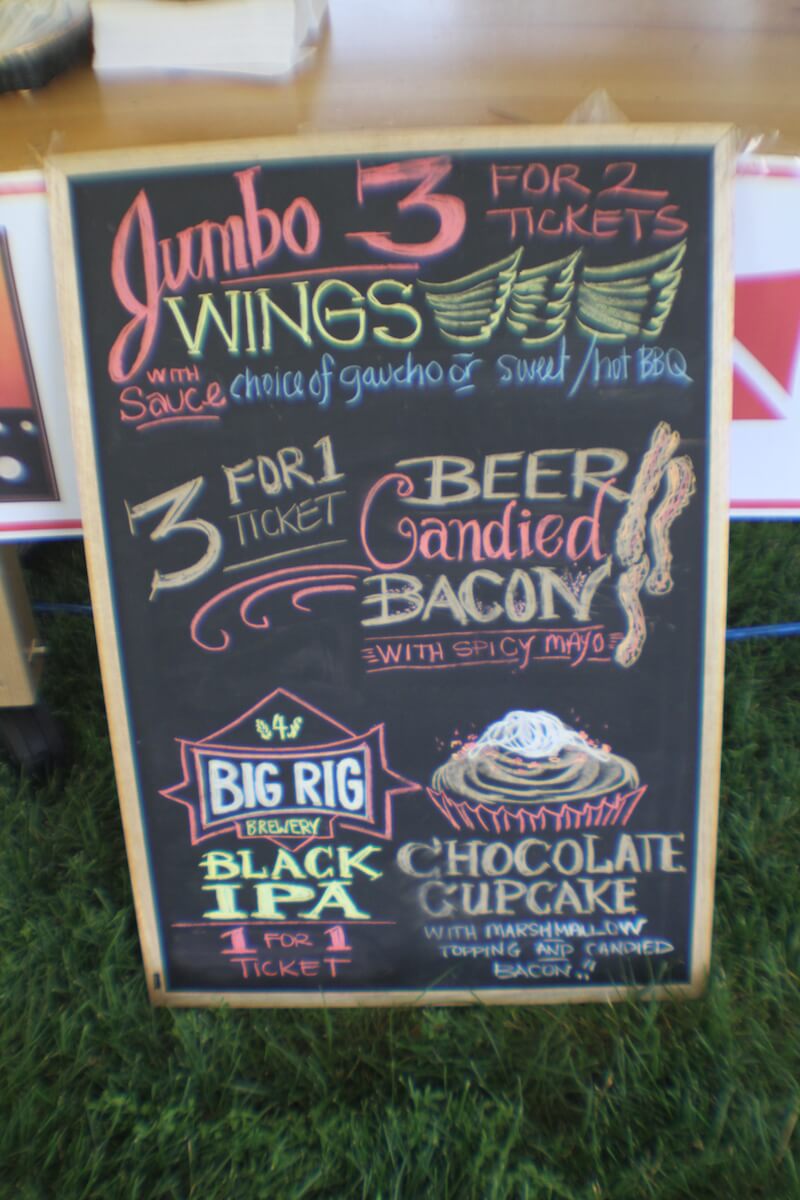 Jumbo 3 FOR 2 TICKETS
WINGS
WITH Sauce choice of gaucho or sweet/hot BBQ
3 FOR 1 TICKET
BEER
Candied
BACON
WITH SPICY MAYO
BIG RIG
BREWERY
BLACK
IPA
1 FOR 1
TICKET
CHOCOLATE
CUPCAKE
WITH MARSHMALLOW
TOPPING AND CANDIED
BACON..